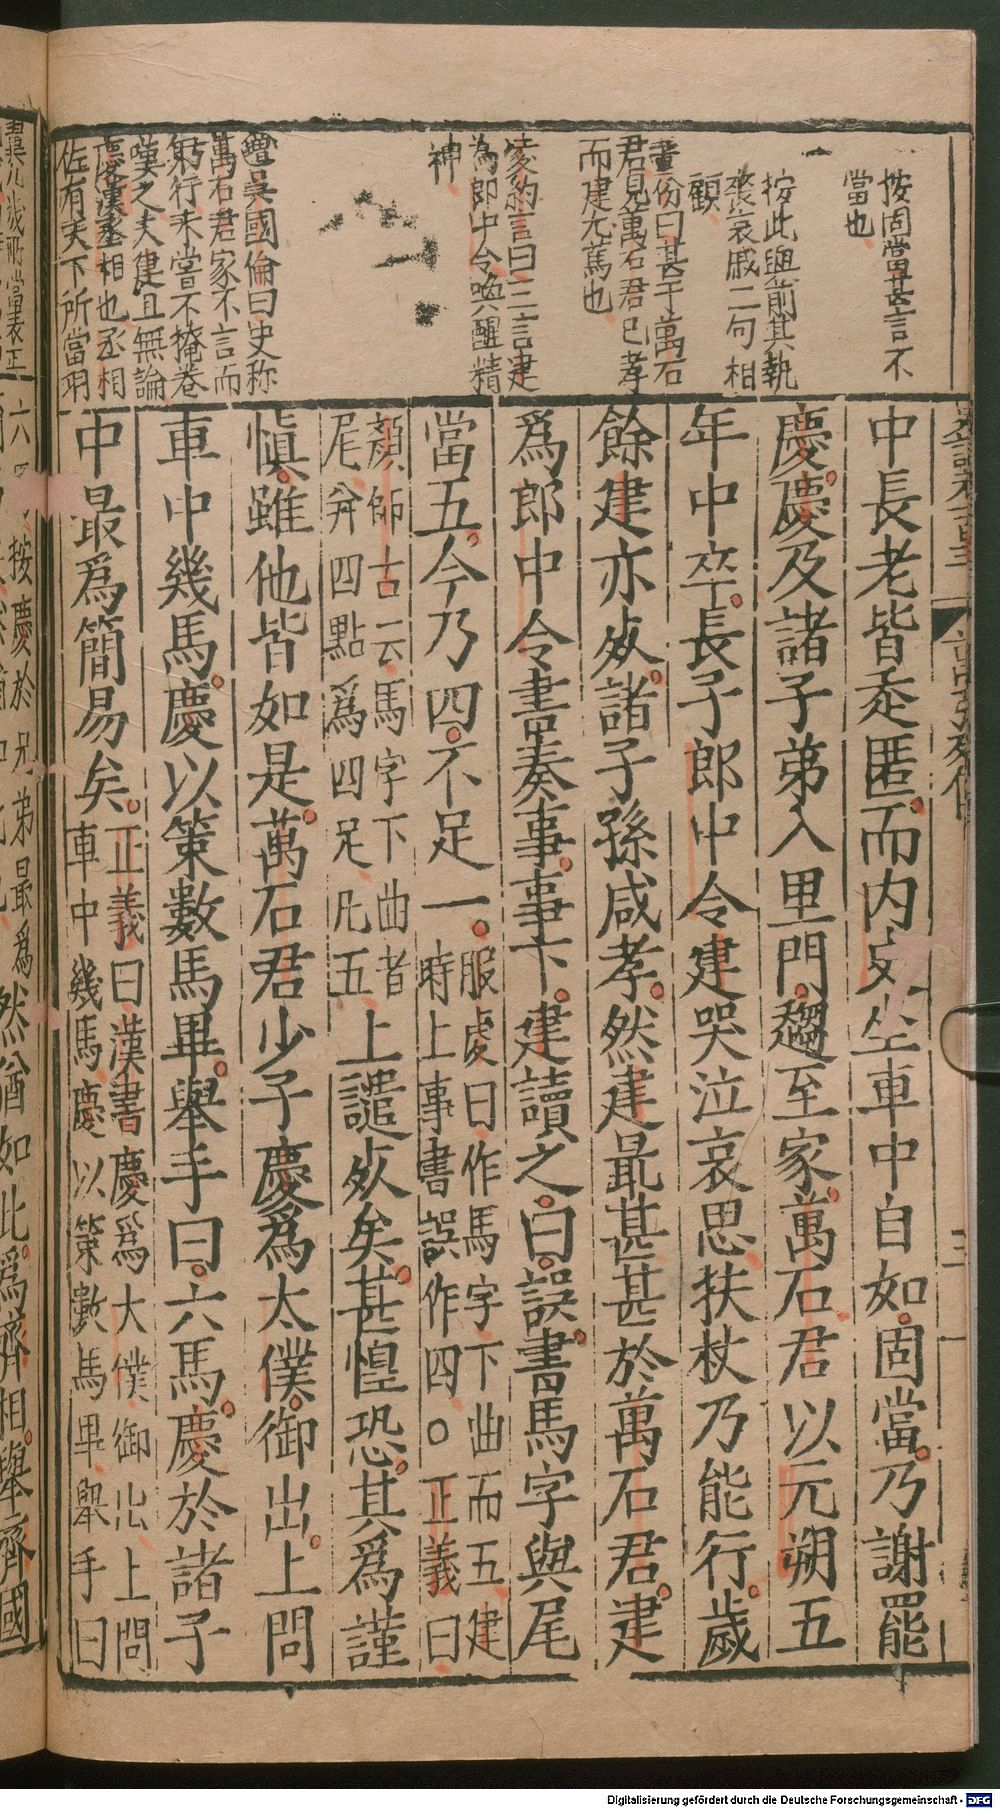 按固當甚言不
當也
按此與前其執
喪哀戚二句相
顧
董份曰甚于萬石
君見萬石君已孝
而建尤篤也
凌約言曰三言建
為郎中令喚醒精
神
吳國倫曰史称
萬石君家不言而
躬行未嘗不掩卷
嘆之夫建且無論
慶漢丞相也丞相
佐有天下所當羽
中長老皆走匿而內史坐車中自如固當乃謝罷
慶慶及諸子弟入里門趨至家萬石君以元朔五
年中卒長子郎中令建哭泣哀思扶杖乃能行歲
餘建亦死諸子孫咸孝然建最甚甚於萬石君建
爲郎中令書奏事事下建讀之曰誤書馬字與尾
當五今乃四不足一
服虔曰作馬字下曲而五建
時上事書誤作四〇正義曰
顏師古云馬字下曲者
尾并四點爲四足凡五
上譴死矣甚惶恐其爲謹
慎雖他皆如是萬石君少子慶爲太僕御出上問
車中幾馬慶以策數馬畢舉手曰六馬慶於諸子
中最爲簡易矣
正義曰漢書慶爲大僕御出上問
車中幾馬慶以策數馬畢舉手曰
六馬按慶於兄弟最爲
然猶如此爲齊相舉齊國
Digitalisierung gefördert durch die Deutsche Forschungsgemeinschaft - DFG